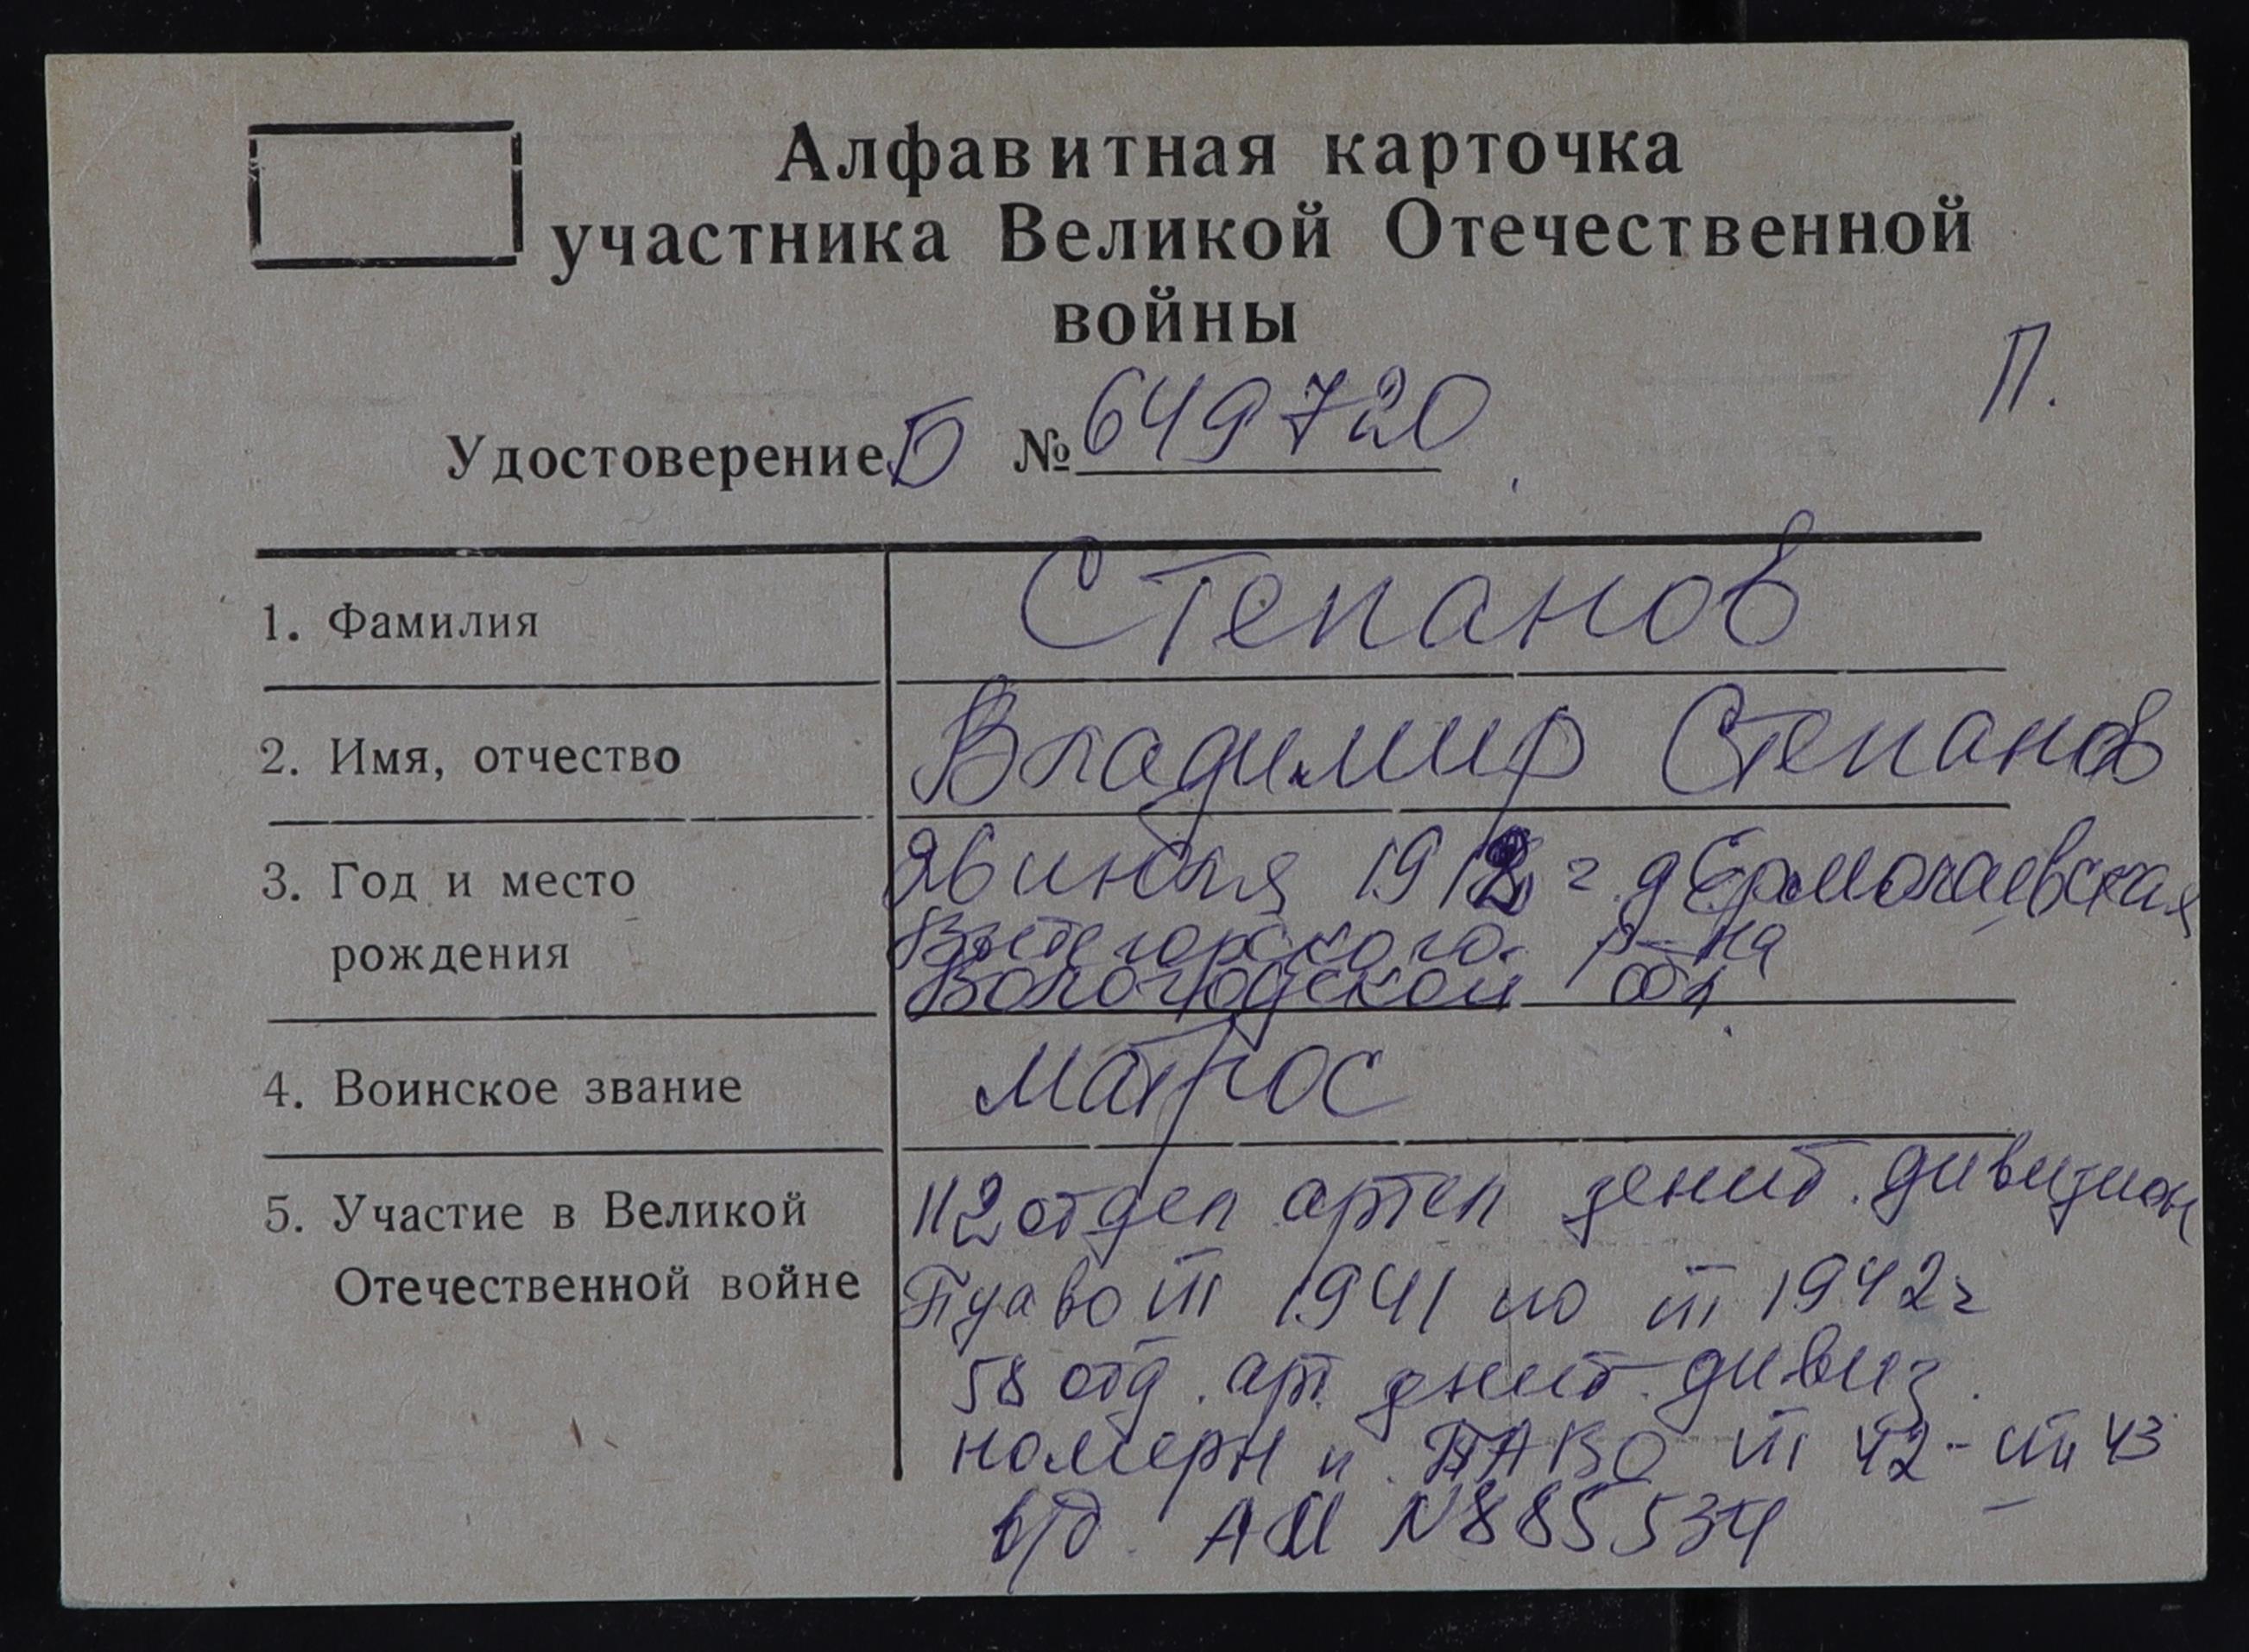 Алфавитная карточка
участника Великой Отечественной
войны
П.
Удостоверение Б № 649720
1. Фамилия Степанов
2. Имя, отчество Владимир Степанов
3. Год и место 26 июля 1912 г д Ермолаевская
Вытегорского р-на
рождения Вологодской обл.
4. Воинское звание матрос
5. Участие в Великой 112 отдел артел зенит. дивизион
Отечественной войне 1941 по III 1942 г
58 отд. арт. зенит. дивиз.
номерн ПАВО III 42 - 43
в/б. АМ N885534